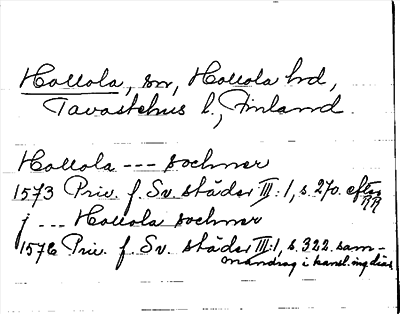 Hollola, sn, Hollola hd,
Tavastehus l., Finland.
Hollola --- sochner
1573 Priv. f. Sv. städer III:1, s. 270. efter
RR
j --- Hollola sochner
1576 Priv. f. Sv. städer III:1, s. 322. sam-
mandrag i kansl. ing. diar.